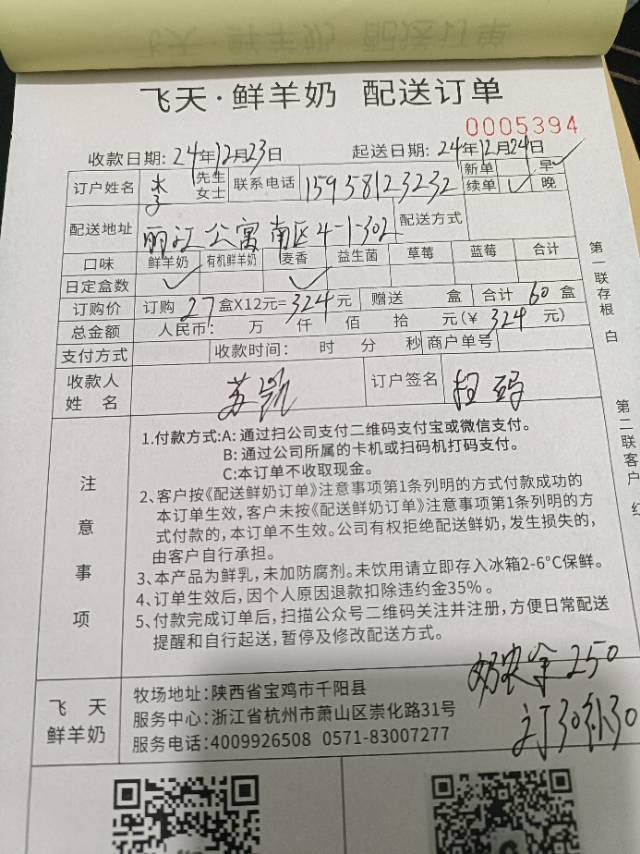 飞天·鲜羊奶 配送订单
0005394
收款日期: 24年12月23日 起送日期: 24年12月24日
订户姓名 李 先生 女士 联系电话 15958123232 新单 早✓ 续单 ✓ 晚
配送地址 丽江公寓南区4-1-302 配送方式
口味 鲜羊奶 有机鲜羊奶 麦香 益生菌 草莓 蓝莓 合计
日定盒数 ✓ ✓
订购价 订购 27 盒X12元= 324 元 赠送 盒 合计 60 盒
总金额 人民币: 万 仟 佰 拾 元(¥ 324 元)
支付方式 收款时间: 时 分 秒 商户单号
收款人姓名 苏凯 订户签名 扫码
第一联存根 白
第二联客户 红
注意事项
1.付款方式:A: 通过扫公司支付二维码支付宝或微信支付。
B: 通过公司所属的卡机或扫码机打码支付。
C:本订单不收取现金。
2、客户按《配送鲜奶订单》注意事项第1条列明的方式付款成功的
本订单生效,客户未按《配送鲜奶订单》注意事项第1条列明的方
式付款的,本订单不生效。公司有权拒绝配送鲜奶,发生损失的,
由客户自行承担。
3、本产品为鲜乳,未加防腐剂。未饮用请立即存入冰箱2-6°C保鲜。
4、订单生效后,因个人原因退款扣除违约金35%。
5、付款完成订单后,扫描公众号二维码关注并注册,方便日常配送
提醒和自行起送,暂停及修改配送方式。
250
订30补30
飞天
鲜羊奶
牧场地址:陕西省宝鸡市千阳县
服务中心:浙江省杭州市萧山区崇化路31号
服务电话:4009926508 0571-83007277